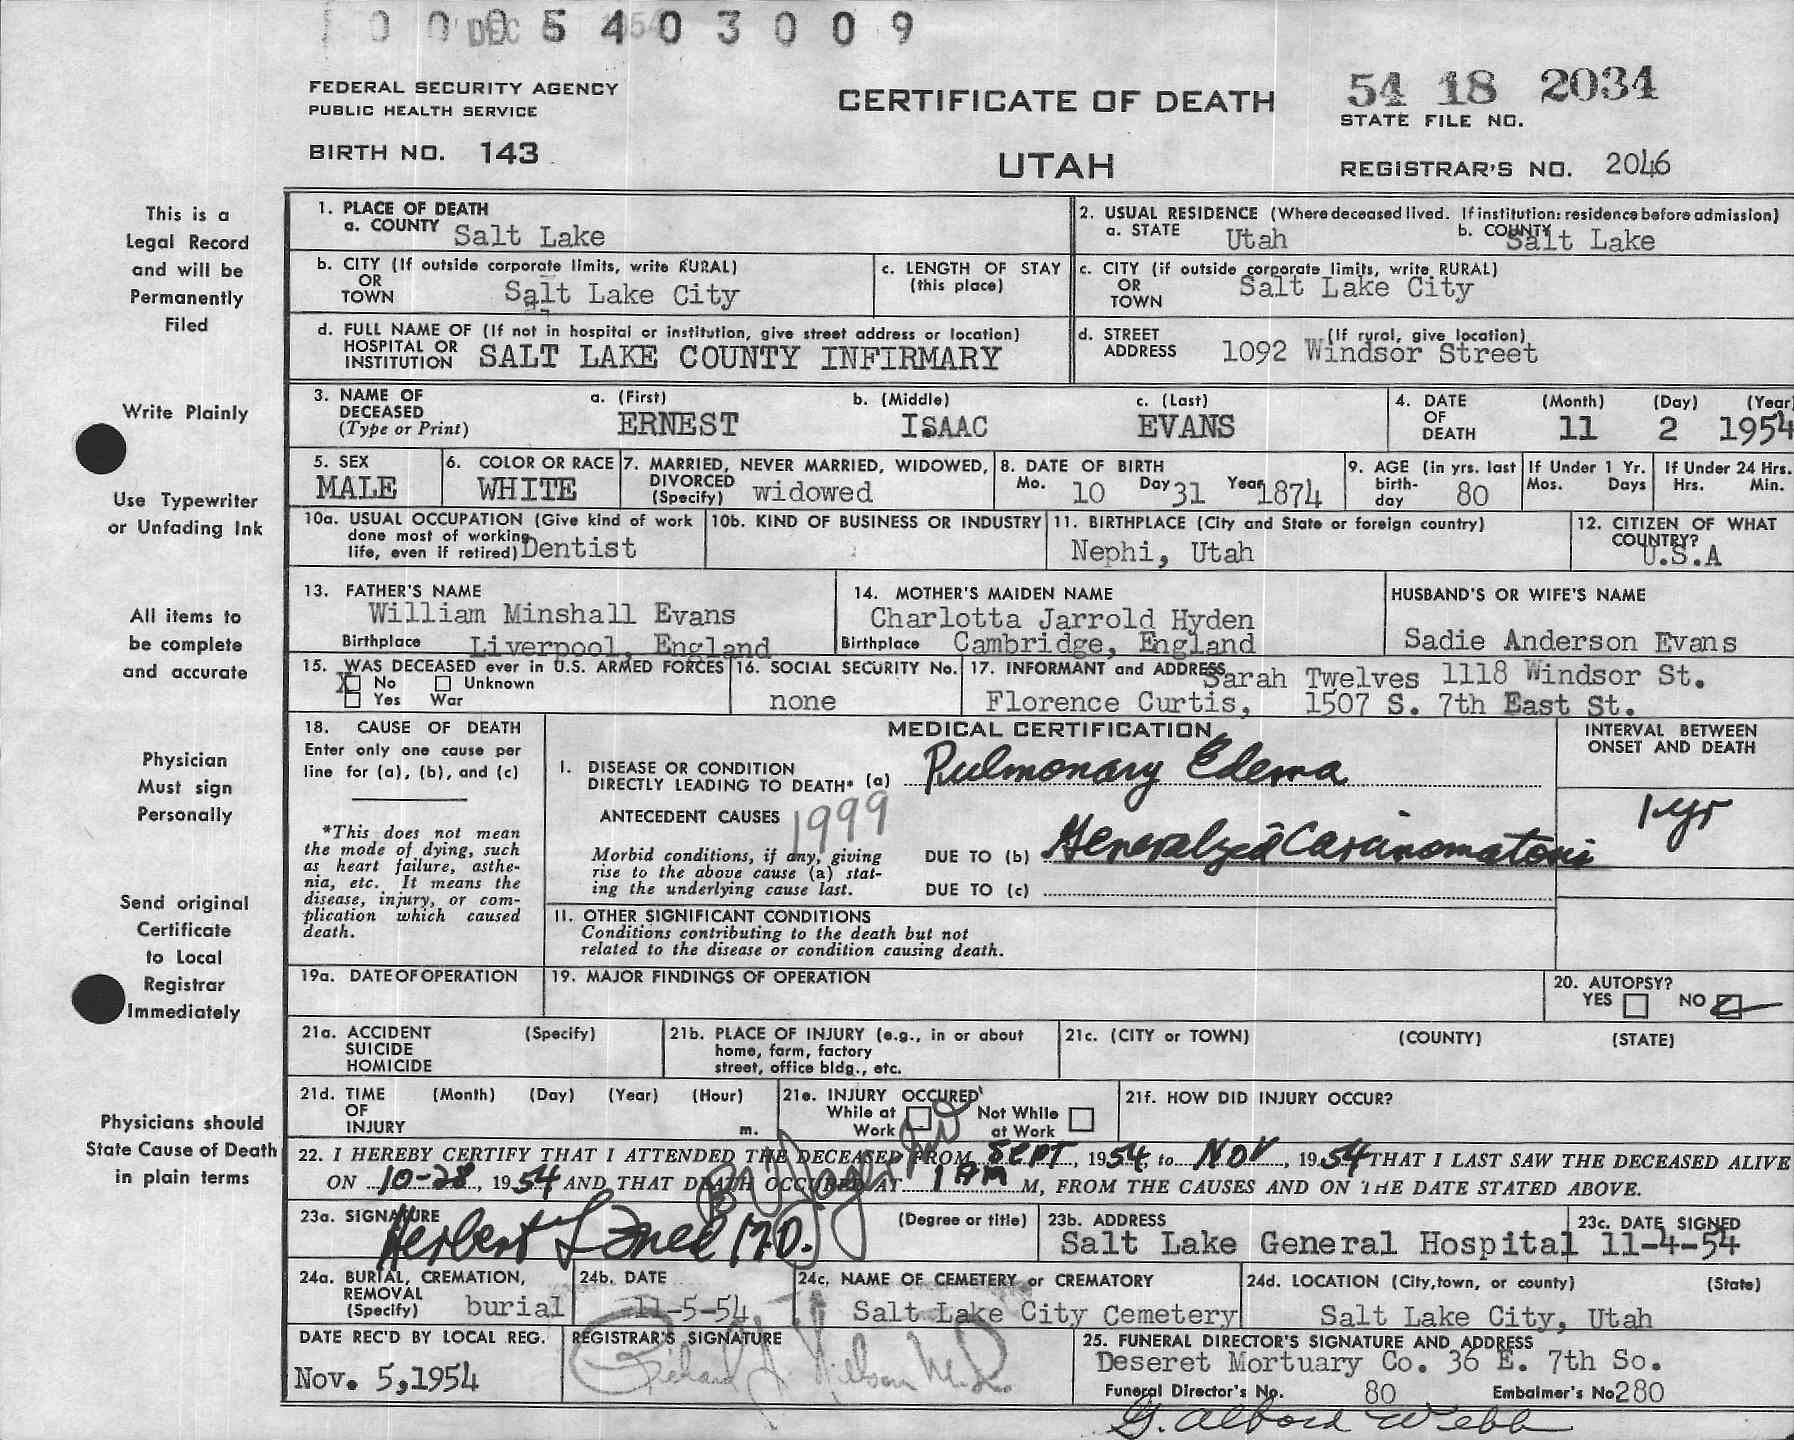 0 0 DEC 5 4 0 3 0 0 9
FEDERAL SECURITY AGENCY
PUBLIC HEALTH SERVICE
BIRTH NO. 143
CERTIFICATE OF DEATH
UTAH
54 18 2034
STATE FILE NO.
REGISTRAR'S NO. 2046
This is a
Legal Record
and will be
Permanently
Filed
Write Plainly
Use Typewriter
or Unfading Ink
All items to
be complete
and accurate
Physician
Must sign
Personally
Send original
Certificate
to Local
Registrar
Immediately
Physicians should
State Cause of Death
in plain terms
1. PLACE OF DEATH
a. COUNTY Salt Lake
2. USUAL RESIDENCE (Where deceased lived. If institution: residence before admission)
a. STATE Utah b. COUNTY Salt Lake
b. CITY (If outside corporate limits, write RURAL)
OR
TOWN Salt Lake City
c. LENGTH OF STAY
(this place)
c. CITY (if outside corporate limits, write RURAL)
OR
TOWN Salt Lake City
d. FULL NAME OF (If not in hospital or institution, give street address or location)
HOSPITAL OR
INSTITUTION SALT LAKE COUNTY INFIRMARY
d. STREET (If rural, give location)
ADDRESS 1092 Windsor Street
3. NAME OF DECEASED (Type or Print)
a. (First) b. (Middle) c. (Last)
ERNEST ISAAC EVANS
4. DATE OF DEATH (Month) (Day) (Year)
11 2 1954
5. SEX
MALE
6. COLOR OR RACE
WHITE
7. MARRIED, NEVER MARRIED, WIDOWED,
DIVORCED
(Specify) widowed
8. DATE OF BIRTH
Mo. 10 Day 31 Year 1874
9. AGE (in yrs. last
birth-
day 80
If Under 1 Yr.
Mos. Days
If Under 24 Hrs.
Hrs. Min.
10a. USUAL OCCUPATION (Give kind of work
done most of working
life, even if retired) Dentist
10b. KIND OF BUSINESS OR INDUSTRY
11. BIRTHPLACE (City and State or foreign country)
Nephi, Utah
12. CITIZEN OF WHAT
COUNTRY?
U.S.A
13. FATHER'S NAME
William Minshall Evans
Birthplace Liverpool, England
14. MOTHER'S MAIDEN NAME
Charlotta Jarrold Hyden
Birthplace Cambridge, England
HUSBAND'S OR WIFE'S NAME
Sadie Anderson Evans
15. WAS DECEASED ever in U.S. ARMED FORCES
X No Unknown
Yes War
16. SOCIAL SECURITY No.
none
17. INFORMANT and ADDRESS Sarah Twelves 1118 Windsor St.
Florence Curtis, 1507 S. 7th East St.
18. CAUSE OF DEATH
Enter only one cause per
line for (a), (b), and (c)
*This does not mean
the mode of dying, such
as heart failure, asthe-
nia, etc. It means the
disease, injury, or com-
plication which caused
death.
MEDICAL CERTIFICATION
I. DISEASE OR CONDITION
DIRECTLY LEADING TO DEATH* (a) Pulmonary Edema
ANTECEDENT CAUSES 1999
Morbid conditions, if any, giving
rise to the above cause (a) stat-
ing the underlying cause last.
DUE TO (b) Generalized Carcinomatosis
DUE TO (c)
INTERVAL BETWEEN
ONSET AND DEATH
1 yr
II. OTHER SIGNIFICANT CONDITIONS
Conditions contributing to the death but not
related to the disease or condition causing death.
19a. DATE OF OPERATION
19. MAJOR FINDINGS OF OPERATION
20. AUTOPSY?
YES NO
21a. ACCIDENT (Specify)
SUICIDE
HOMICIDE
21b. PLACE OF INJURY (e.g., in or about
home, farm, factory
street, office bldg., etc.
21c. (CITY or TOWN) (COUNTY) (STATE)
21d. TIME (Month) (Day) (Year) (Hour)
OF
INJURY m.
21e. INJURY OCCURED
While at Work Not While at Work
21f. HOW DID INJURY OCCUR?
22. I HEREBY CERTIFY THAT I ATTENDED THE DECEASED FROM SEPT, 1954, to NOV, 1954 THAT I LAST SAW THE DECEASED ALIVE
ON 10-28, 1954 AND THAT DEATH OCCURED AT 1 AM M, FROM THE CAUSES AND ON THE DATE STATED ABOVE.
23a. SIGNATURE (Degree or title)
Herbert M.D.
23b. ADDRESS
Salt Lake General Hospital
23c. DATE SIGNED
11-4-54
24a. BURIAL, CREMATION,
REMOVAL
(Specify) burial
24b. DATE
11-5-54
24c. NAME OF CEMETERY or CREMATORY
Salt Lake City Cemetery
24d. LOCATION (City, town, or county) (State)
Salt Lake City, Utah
DATE REC'D BY LOCAL REG.
Nov. 5, 1954
REGISTRAR'S SIGNATURE
Richard Nielson M.D.
25. FUNERAL DIRECTOR'S SIGNATURE AND ADDRESS
Deseret Mortuary Co. 36 E. 7th So.
Funeral Director's No. 80 Embalmer's No 280
G. Albord Webb